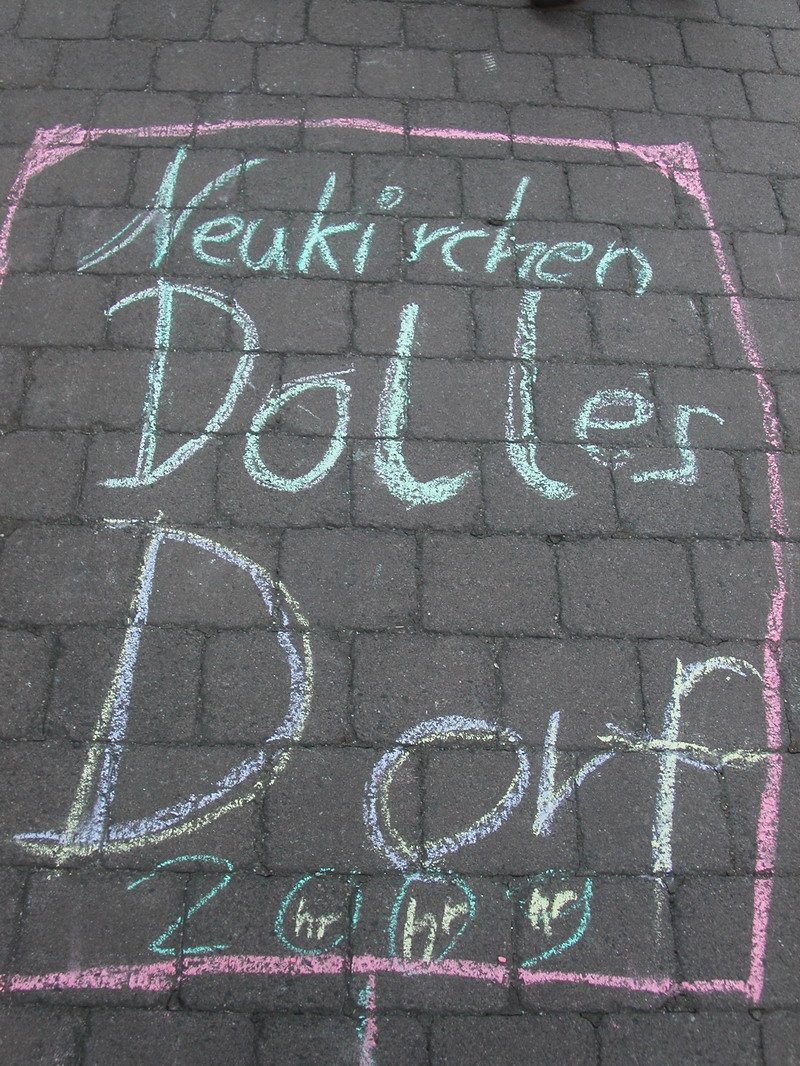 Neukirchen
Dolles
Dorf
2009
hr hr hr